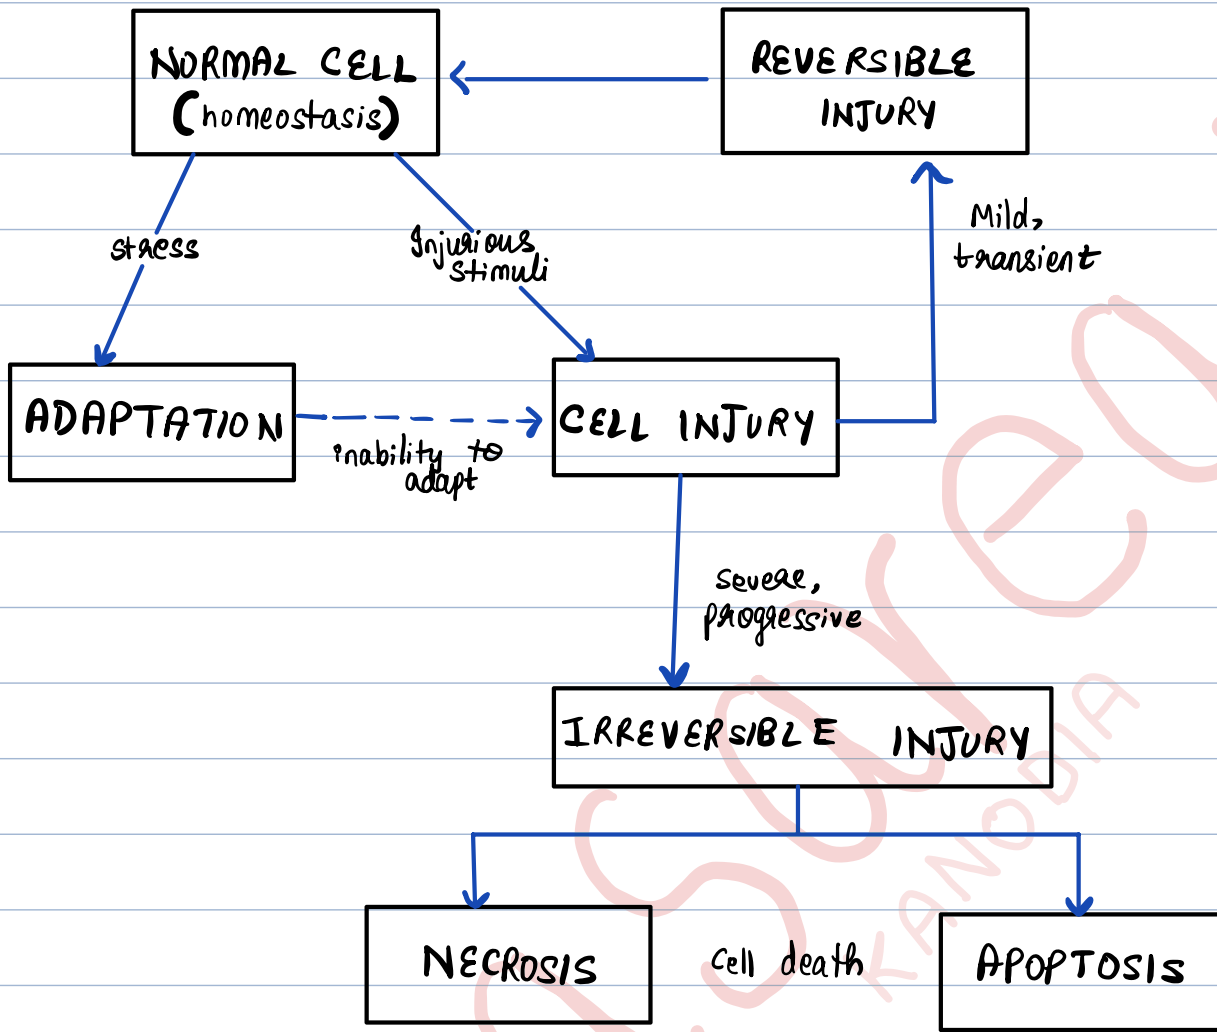 NORMAL CELL
(homeostasis)
REVERSIBLE
INJURY
stress
Injurious
stimuli
Mild,
transient
ADAPTATION
inability to
adapt
CELL INJURY
severe,
progressive
IRREVERSIBLE INJURY
NECROSIS
Cell death
APOPTOSIS
KANODIA